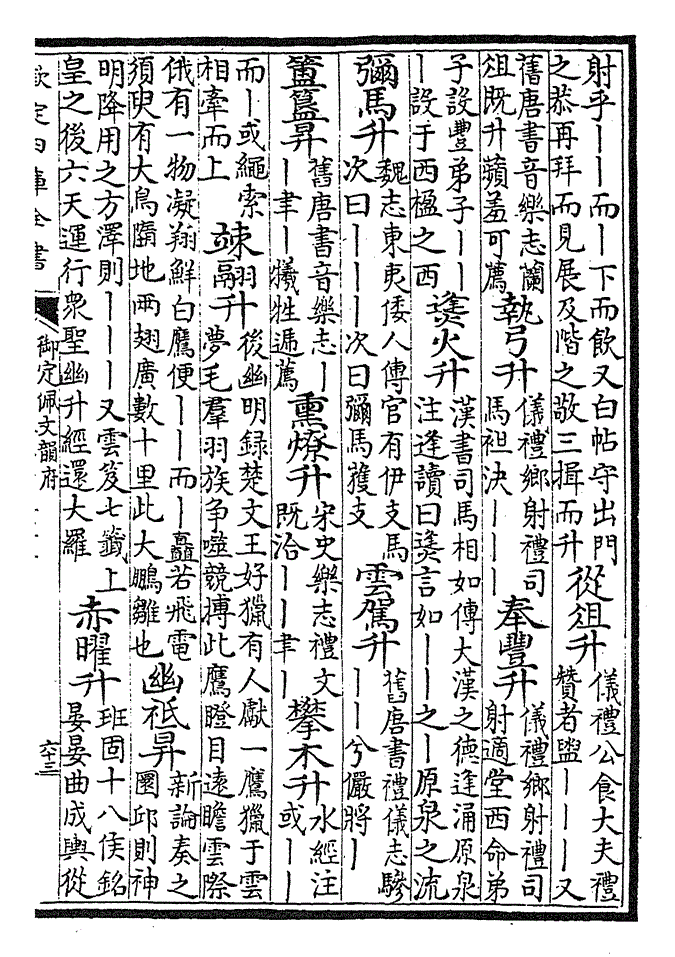 射乎丨丨而丨下而飲又白帖守出門
之恭再拜而見展及階之敬三揖而升
從俎升
儀禮公食大夫禮
贊者盥丨丨丨又
舊唐書音樂志蘭
俎既升蘋羞可薦
執弓升
儀禮鄉射禮司
馬袒決丨丨丨
奉豐升
儀禮鄉射禮司
射適堂西命弟
子設豐弟子丨丨
丨設于西楹之西
熢火升
漢書司馬相如傳大漢之德逢涌原泉
注逢讀曰熢言如丨丨之丨原泉之流
彌馬升
魏志東夷倭人傳官有伊支馬
次曰丨丨丨次曰彌馬獲支
雲駕升
舊唐書禮儀志驂
丨丨兮儼將丨
簠簋昇
舊唐書音樂志丨
丨聿丨犧牲遞薦
熏燎升
宋史樂志禮文
既洽丨丨聿丨
攀木升
水經注
或丨丨
而丨或繩索
相牽而上
竦翮升
後幽明録楚文王好獵有人獻一鷹獵于雲
夢毛羣羽族争噬競搏此鷹瞪目遠瞻雲際
俄有一物凝翔鮮白鷹便丨丨而丨矗若飛電
須臾有大鳥墮地兩翅廣數十里此大鵬雛也
幽祇昇
新論奏之
圜邱則神
明降用之方澤則丨丨丨又雲笈七籤上
皇之後六天運行衆聖幽升經還大羅
赤曜升
班固十八侯銘
晏晏曲成輿從
欽定四庫全書
御定佩文韻府
六十三